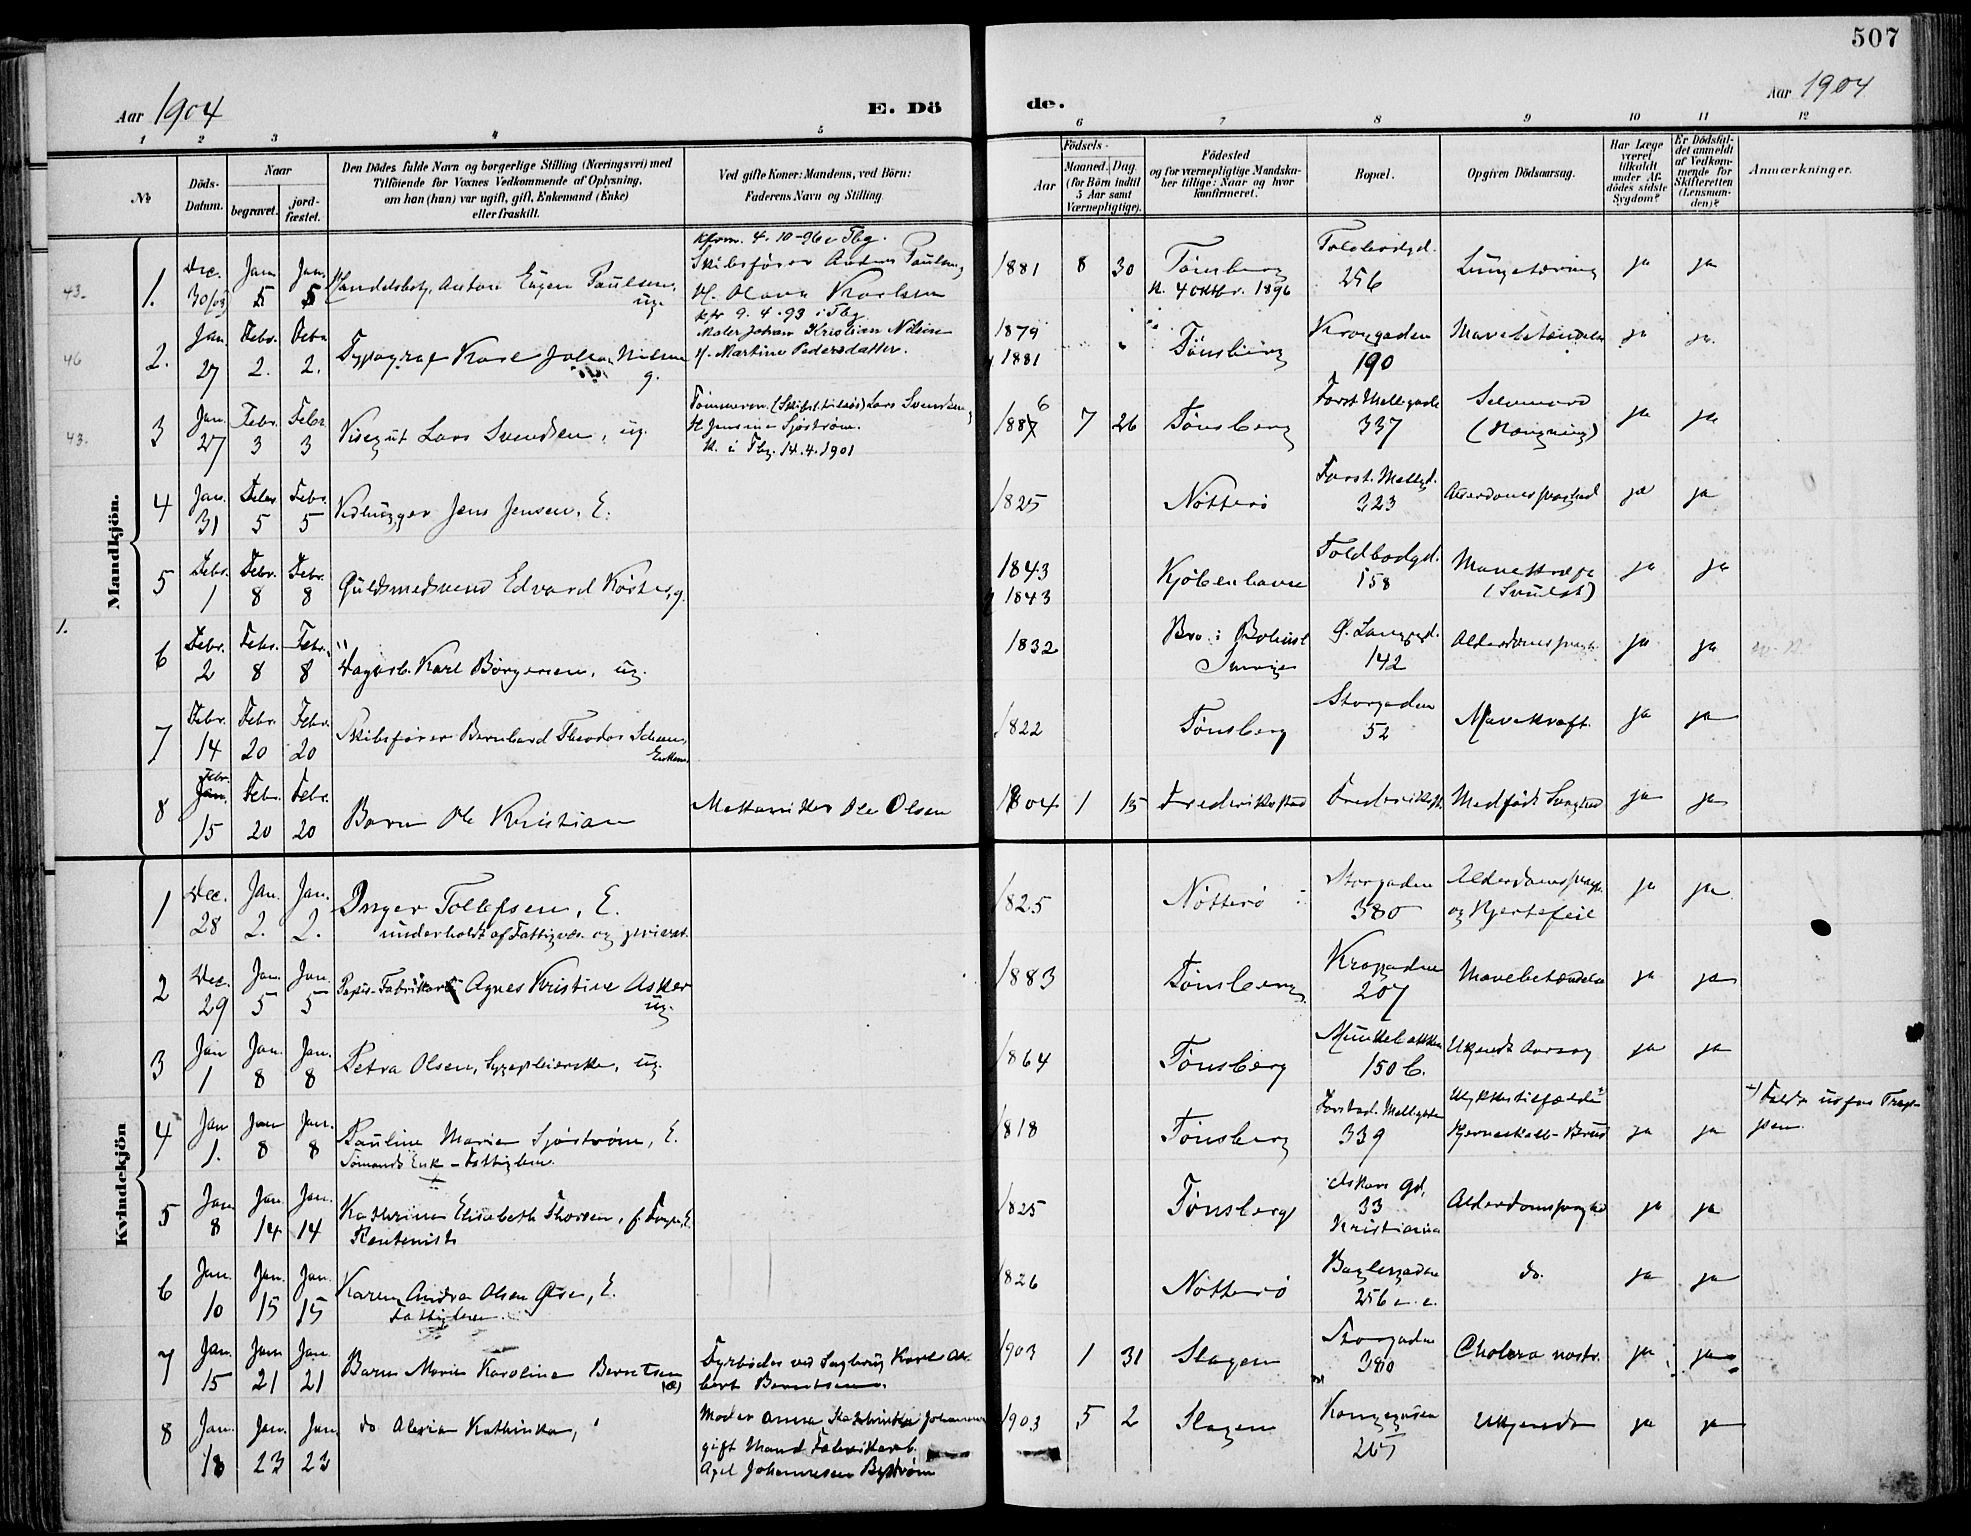 507
Aar 1904
E. Dö
de.
Aar 1904
1 2 3 4 5 6 7 8 9 10 11 12
№
Döds-Datum.
Naar
begravet.
jord-fæstet.
Den Dödes fulde Navn og borgerlige Stilling (Næringsvei) med
Tilföiende for Voxnes Vedkommende af Oplysning,
om han (hun) var ugift, gift, Enkemand (Enke)
eller fraskilt.
Ved gifte Koner: Mandens, ved Börn:
Faderens Navn og Stilling.
Födsels-
Aar
Maaned.
Dag.
(for Börn indtil
5 Aar samt
Værnepligtige).
Födested
og for værnepligtige Mandska-
ber tillige: Naar og hvor
konfirmeret.
Bopæl.
Opgiven Dödsaarsag.
Har Læge
været
tilkaldt
under Af-
dödes sidste
Sygdom?
Er Dödsfal-
det anmeldt
af Vedkom-
mende for
Skifteretten
(Lensman-
den)?
Anmærkninger.
Mandkjön.
43. 1. Dec. 30/03 Jan. 5 Jan. 5 Handelsbetj. Anton Eugen Paulsen, ug.
Kfrm. 4.10-96 i Tbg.
Skibsfører Anders Paulsen
H. Olava Karlsen
1881 8 30 Tønsberg K. 4 oktbr. 1896 Toldbodgd. 256 Lungetæring ja ja
46 2. Jan. 27 Febr. 2. Febr. 2. Typograf Karl Johan Nilsen g.
kfr 9.4.93 i Tbg
Maler Johan Kristian Nilsen
H. Martine Pedersdatter.
1879 1881 Tønsberg 190 ja ja
43. 3 Jan. 27 Febr. 3 Febr. 3 Visergut Lars Svendsen, ug.
Lars Svendsen
H. Jensine Sjøstrøm.
K. i Tbg. 14.4.1901
1886 7 26 Tønsberg Farst. Mellegade 337 Selvmord (Hængning) ja ja
4 Jan. 31 Febr. 5 Febr. 5 Vedhugger Jens Jensen, E. 1825 Nøtterø Farst. Mellegd. 323 ja ja
5 Febr. 1 Febr. 8 Febr. 8 Guldsmedsvend Edvard g. 1843 1843 Kjøbenhavn Toldbodgd. 158 (Svulst) ja ja
1. 6 Febr. 2 Febr. 8 Febr. 8 Dagarb. Karl Børgesen, ug. 1832 Bro i Bohusl. Sverige Ø. Langgd. 142 ja ja
7 Febr. 14 Febr. 20 Febr. 20 Skibsfører Bernhard Theodor Enkem. 1822 Tønsberg Storgaden 52 Mavekræft. ja ja
8 Febr. 15 Febr. 20 Febr. 20 Barn Ole Kristian Ole Olsen 1904 1 15 Fredrikstad Fredrikst. Medfødt Svaghed ja ja
Kvindekjön
1 Dec. 28 Jan. 2. Jan. 2. Inger Tollefsen, E.
underholdt af Fattigvæs. og privat.
1825 Nøtterø Storgaden 380 og Hjertefeil ja ja
2 Dec. 29 Jan. 5 Jan. 5 Agnes Kristine Asker ug. 1883 Tønsberg 207 Mavebetændelse ja ja
3 Jan 1 Jan. 8 Jan. 8 Petra Olsen, Sygepleierske, ug. 1864 Tønsberg 150 b. Ukjendt Aarsag ja ja
4 Jan 1. Jan 8 Jan. 8 Pauline Marie Sjøstrøm, E.
Sømands Enke - Fattiglem.
1818 Tønsberg Farstad. Mellegaden 339 Ulykkestilfælde Hjerneskall-Brud ja ja Faldt udfor Trap-pen.
5 Jan 8 Jan. 14 Jan. 14 Kathrine Elisabeth Thorsen, E.
Rentenist
1825 Tønsberg Askers gd. 33 Kristiania ja ja
6 Jan. 10 Jan. 15 Jan. 15 Karen Andrea Olsen E.
Fattiglem.
1826 Nøtterø Baglergaden 256 do. ja ja
7 Jan. 15 Jan 21 Jan. 21 Barn Marie Karoline Berntsen (æ)
Fyrbøder ved Sagbrug Karl Al-
bert Berntsen.
1903 1 31 Slagen Storgaden 380 Cholera nostr. ja ja
8 Jan. 18 Jan. 23 Jan. 23 do Kathinka,
Moder Anna Johannesen
gift Mand Fabrikarb.
Axel Johannesen Bystrøm
1903 5 2 Slagen 265 Ukjendt ja ja